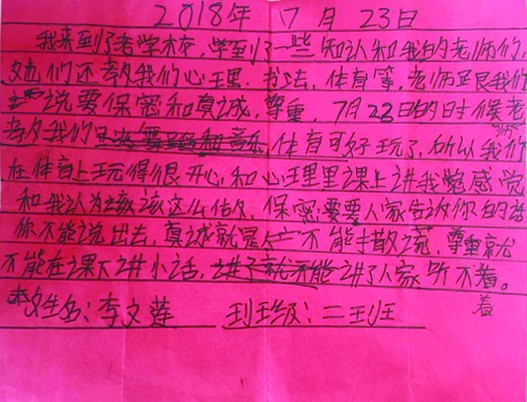 2018年 7月23日
我来到了老学校,学到了一些知认和我的老师们,
她们还教我们心王里、书法,体育等,老师正艮我们
说要保密和真诚,尊重,7月23日的日寸候老
教我们 体育可好玩了,所以我们
在体育上玩得很开心,和心王里里课上讲我觉感觉
和我认为该该这么估久,保密要要人家告诉你的话
你不能说出去,真诚就是 不能手散谎,尊重就
不能在课下讲小话,讲了就不能讲了人家听不着。
姓名:李文莲 班级:二班
着